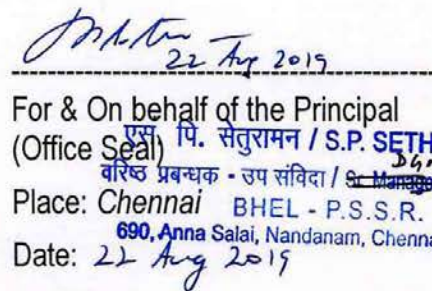 22 Aug 2019
For & On behalf of the Principal
(Office Seal)
एस. पि. सेतुरामन / S.P. SETH
DGM
वरिष्ठ प्रबन्धक - उप संविदा / Sr. Manage
Place: Chennai BHEL - P.S.S.R.
690, Anna Salai, Nandanam, Chenna
Date: 22 Aug 2019